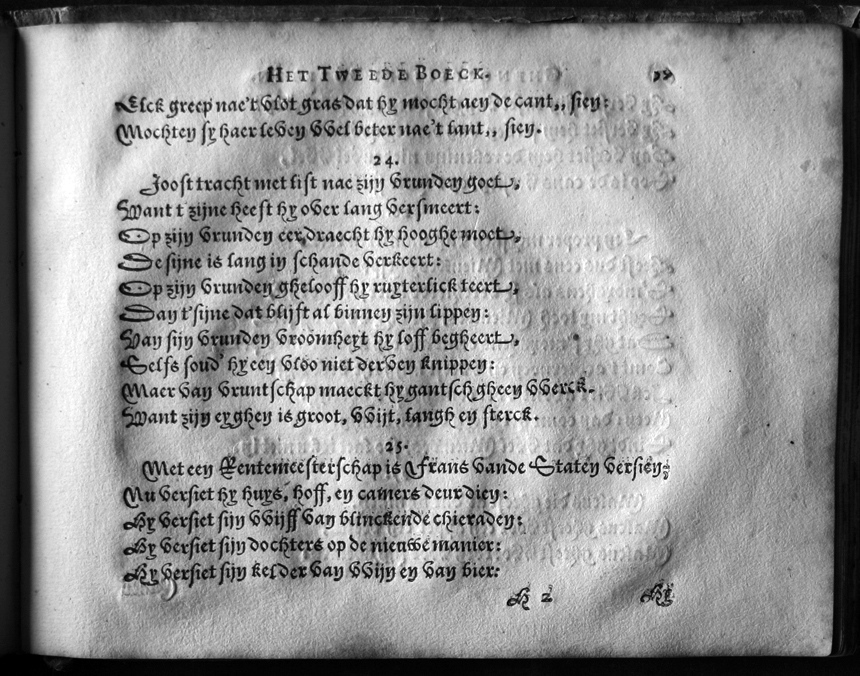 HET TWEEDE BOECK.
Elck greep nae't vlot gras dat hy mocht aen de cant,, sien:
Mochten sy haer leven wel beter nae't lant,, sien.
24.
Joost tracht met list nae zijn vrunden goet,
Want t zijne heeft hy over lang versmeert:
Op zijn vrunden eer draecht hy hooghe moet,
De sijne is lang in schande verkeert:
Op zijn vrunden ghelooff hy ruyterlick teert,
Dan t'sijne dat blijft al binnen zijn lippen:
Van sijn vrunden vroomheyt hy loff begheert,
Selfs soud' hy een vloo niet derven knippen:
Maer van vruntschap maeckt hy gantsch gheen werck.
Want zijn eyghen is groot, wijt, langh en sterck.
25.
Met een Rentemeesterschap is Frans vande Staten versien;
Nu versiet hy huys, hoff, en camers deur dien:
Hy versiet sijn wijff van blinckende chieraden:
Hy versiet sijn dochters op de nieuwe manier:
Hy versiet sijn kelder van wijn en van bier:
H 2 Hy